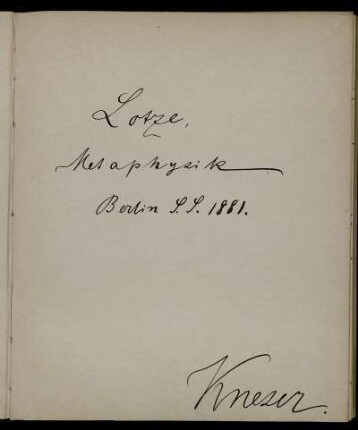 Lotze,
Metaphysik
Berlin S.S. 1881.
Kneser.